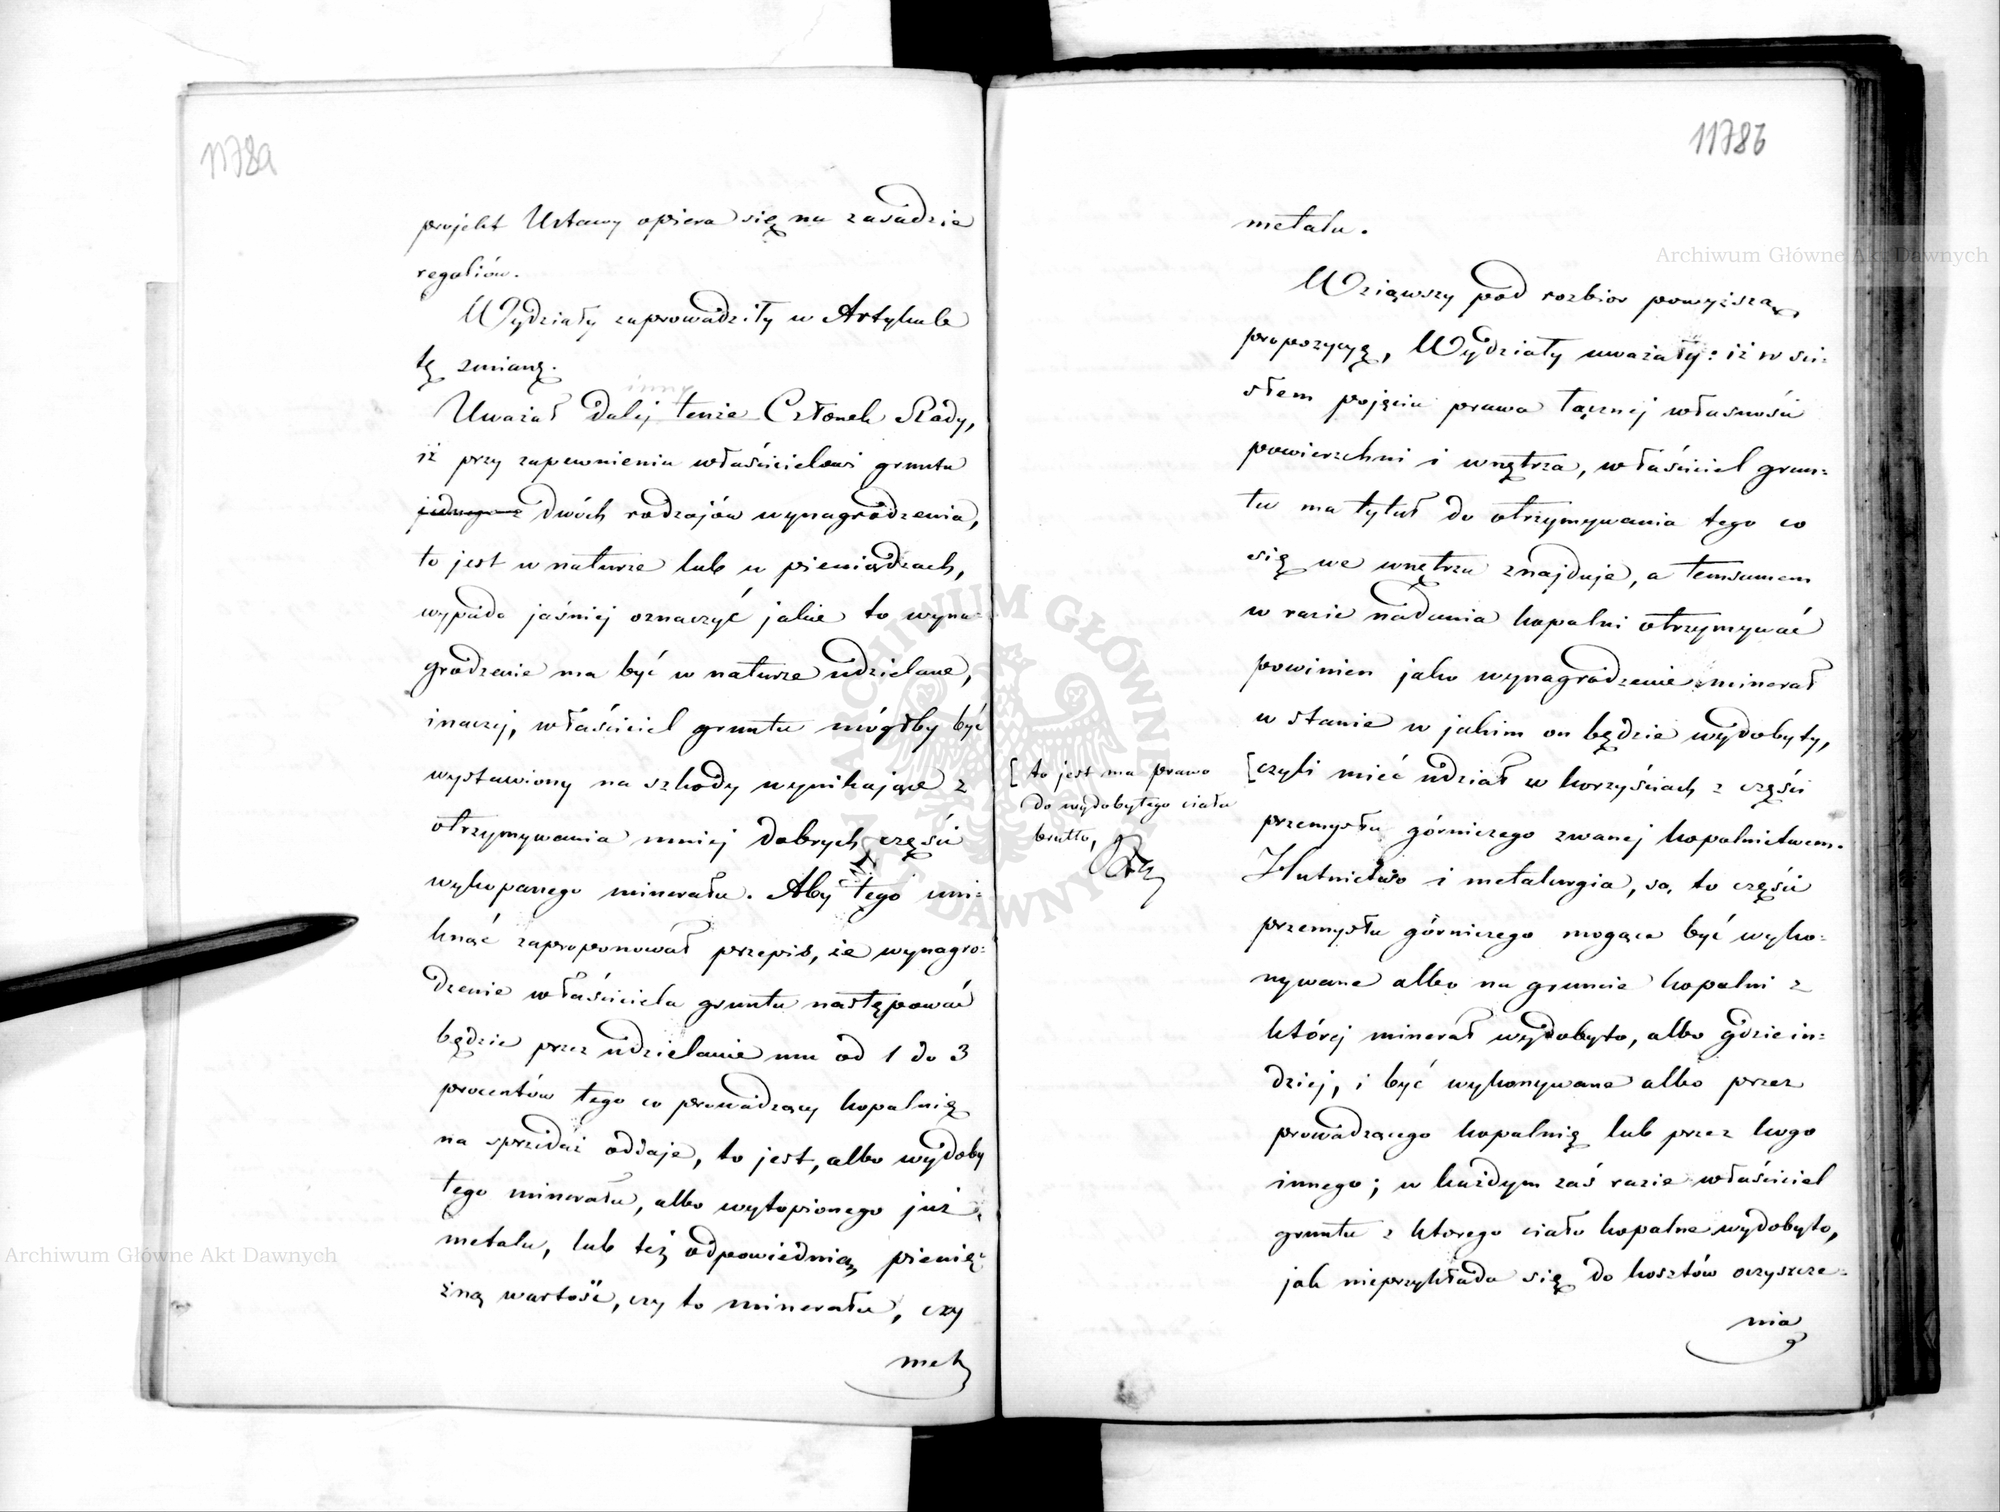 1178a
projekt Ustawy opiera się na zasadzie
regaliów.
Wydziały zaprowadziły w Artykule
tę zmianę.
inny
Uważał dalej tenże Członek Rady,
iż przy zapewnieniu właścicielowi gruntu
jednego z dwóch rodzajów wynagrodzenia,
to jest w naturze lub w pieniądzach,
wypada jaśniej oznaczyć jakie to wyna-
grodzenie ma być w naturze udzielane,
inaczej, właściciel gruntu mógłby być
wystawiony na szkody wynikające z
otrzymywania mniej dobrych części
wykopanego minerału. Aby tego uni-
knąć zaproponował przepis, że wynagro-
dzenie właściciela gruntu następować
będzie przez udzielanie mu od 1 do 3
procentów tego co prowadzący kopalnię
na sprzedaż oddaje, to jest, albo wydoby
tego minerału, albo wytopionego już
metalu, lub też odpowiednią pienię-
żną wartość, czy to minerału, czy
met
1178b
metalu.
Wziąwszy pod rozbior powyższą
propozycyę, Wydziały uważały: iż w ści-
słem pojęciu prawa łącznej własności
powierzchni i wnętrza, właściciel grun-
tu ma tytuł do otrzymywania tego co
się we wnętrzu znajduje, a temsamem
w razie nadania kopalni otrzymywać
powinien jako wynagrodzenie minerał
w stanie w jakim on będzie wydobyty,
[to jest ma prawo
do wydobytego ciała
brutto,
[czyli mieć udział w korzyściach z części
przemysłu górniczego zwanej kopalnictwem.
Hutnictwo i metalurgia, są to części
przemysłu górniczego mogące być wyko-
nywane albo na gruncie kopalni z
której minerał wydobyto, albo gdziein-
dziej, i być wykonywane albo przez
prowadzącego kopalnię lub przez kogo
innego; w każdym zaś razie właściciel
gruntu z ktorego ciało kopalne wydobyto,
jak nieprzykłada się do kosztów oczyszcze-
nia
Archiwum Główne Akt Dawnych
Archiwum Główne Akt Dawnych
ARCHIWUM GŁÓWNE AKT DAWNYCH